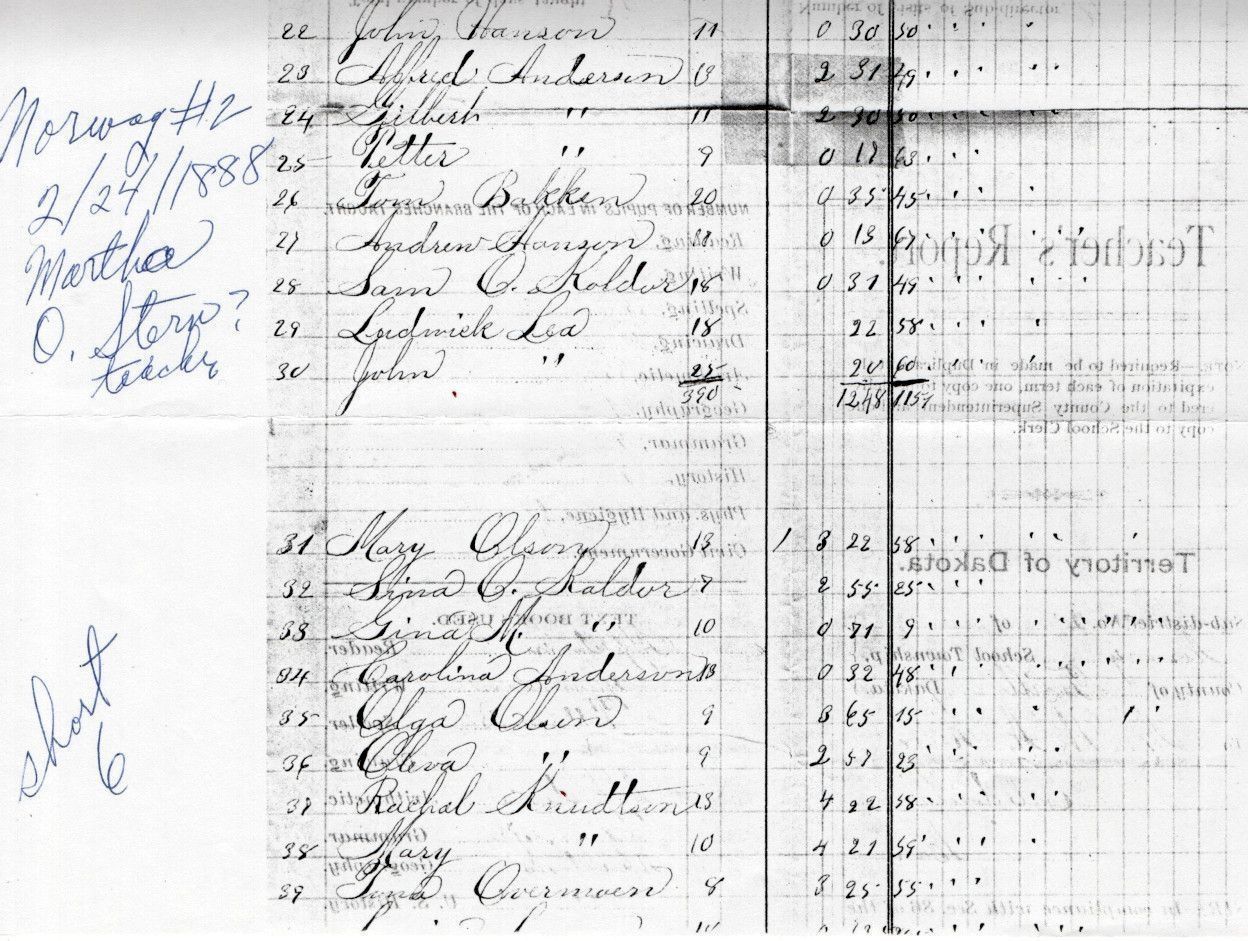 22 John Hanson 11 0 30 50
23 Alfred Anderson 13 2 31 49
24 Gilbert " 11 2 30 50
25 Petter " 9 0 17 63
26 Tom Bakken 20 0 35 45
27 Andrew Hanson 0 13 67
28 Sam O. Koldor 18 0 31 49
29 Ludwick Lea 18 22 58
30 John " 25 20 60
390 1248 1151
31 Mary Olson 13 1 3 22 58
32 Sina O. Kaldor 7 2 55 25
33 Gina M. " 10 0 71 9
34 Carolina Anderson 13 0 32 48
35 Olga Olsen 9 3 65 15
36 Oleva " 9 2 57 23
37 Rachal Knudtson 13 4 22 58
38 Mary " 10 4 21 59
39 Tona Overmoen 8 3 25 55
Norway #2
2/24/1888
Martha
O. Stern?
teacher
short
6
NUMBER OF PUPILS IN EACH OF THE BRANCHES TAUGHT.
Reading,
Writing,
Spelling,
Drawing,
Arithmetic,
Geography,
Grammar,
History,
Phys. and Hygiene,
Civil Government,
TEXT BOOKS USED.
Reader
Writing,
Grammar,
Geography
U. S. History,
Teacher's Report.
NOTE.—Required to be made in Duplicate
expiration of each term, one copy
ered to the County Superintendent
copy to the School Clerk.
Territory of Dakota.
Sub-district No. of
School Township,
County of Dakota.
in compliance with Sec. 86 of the